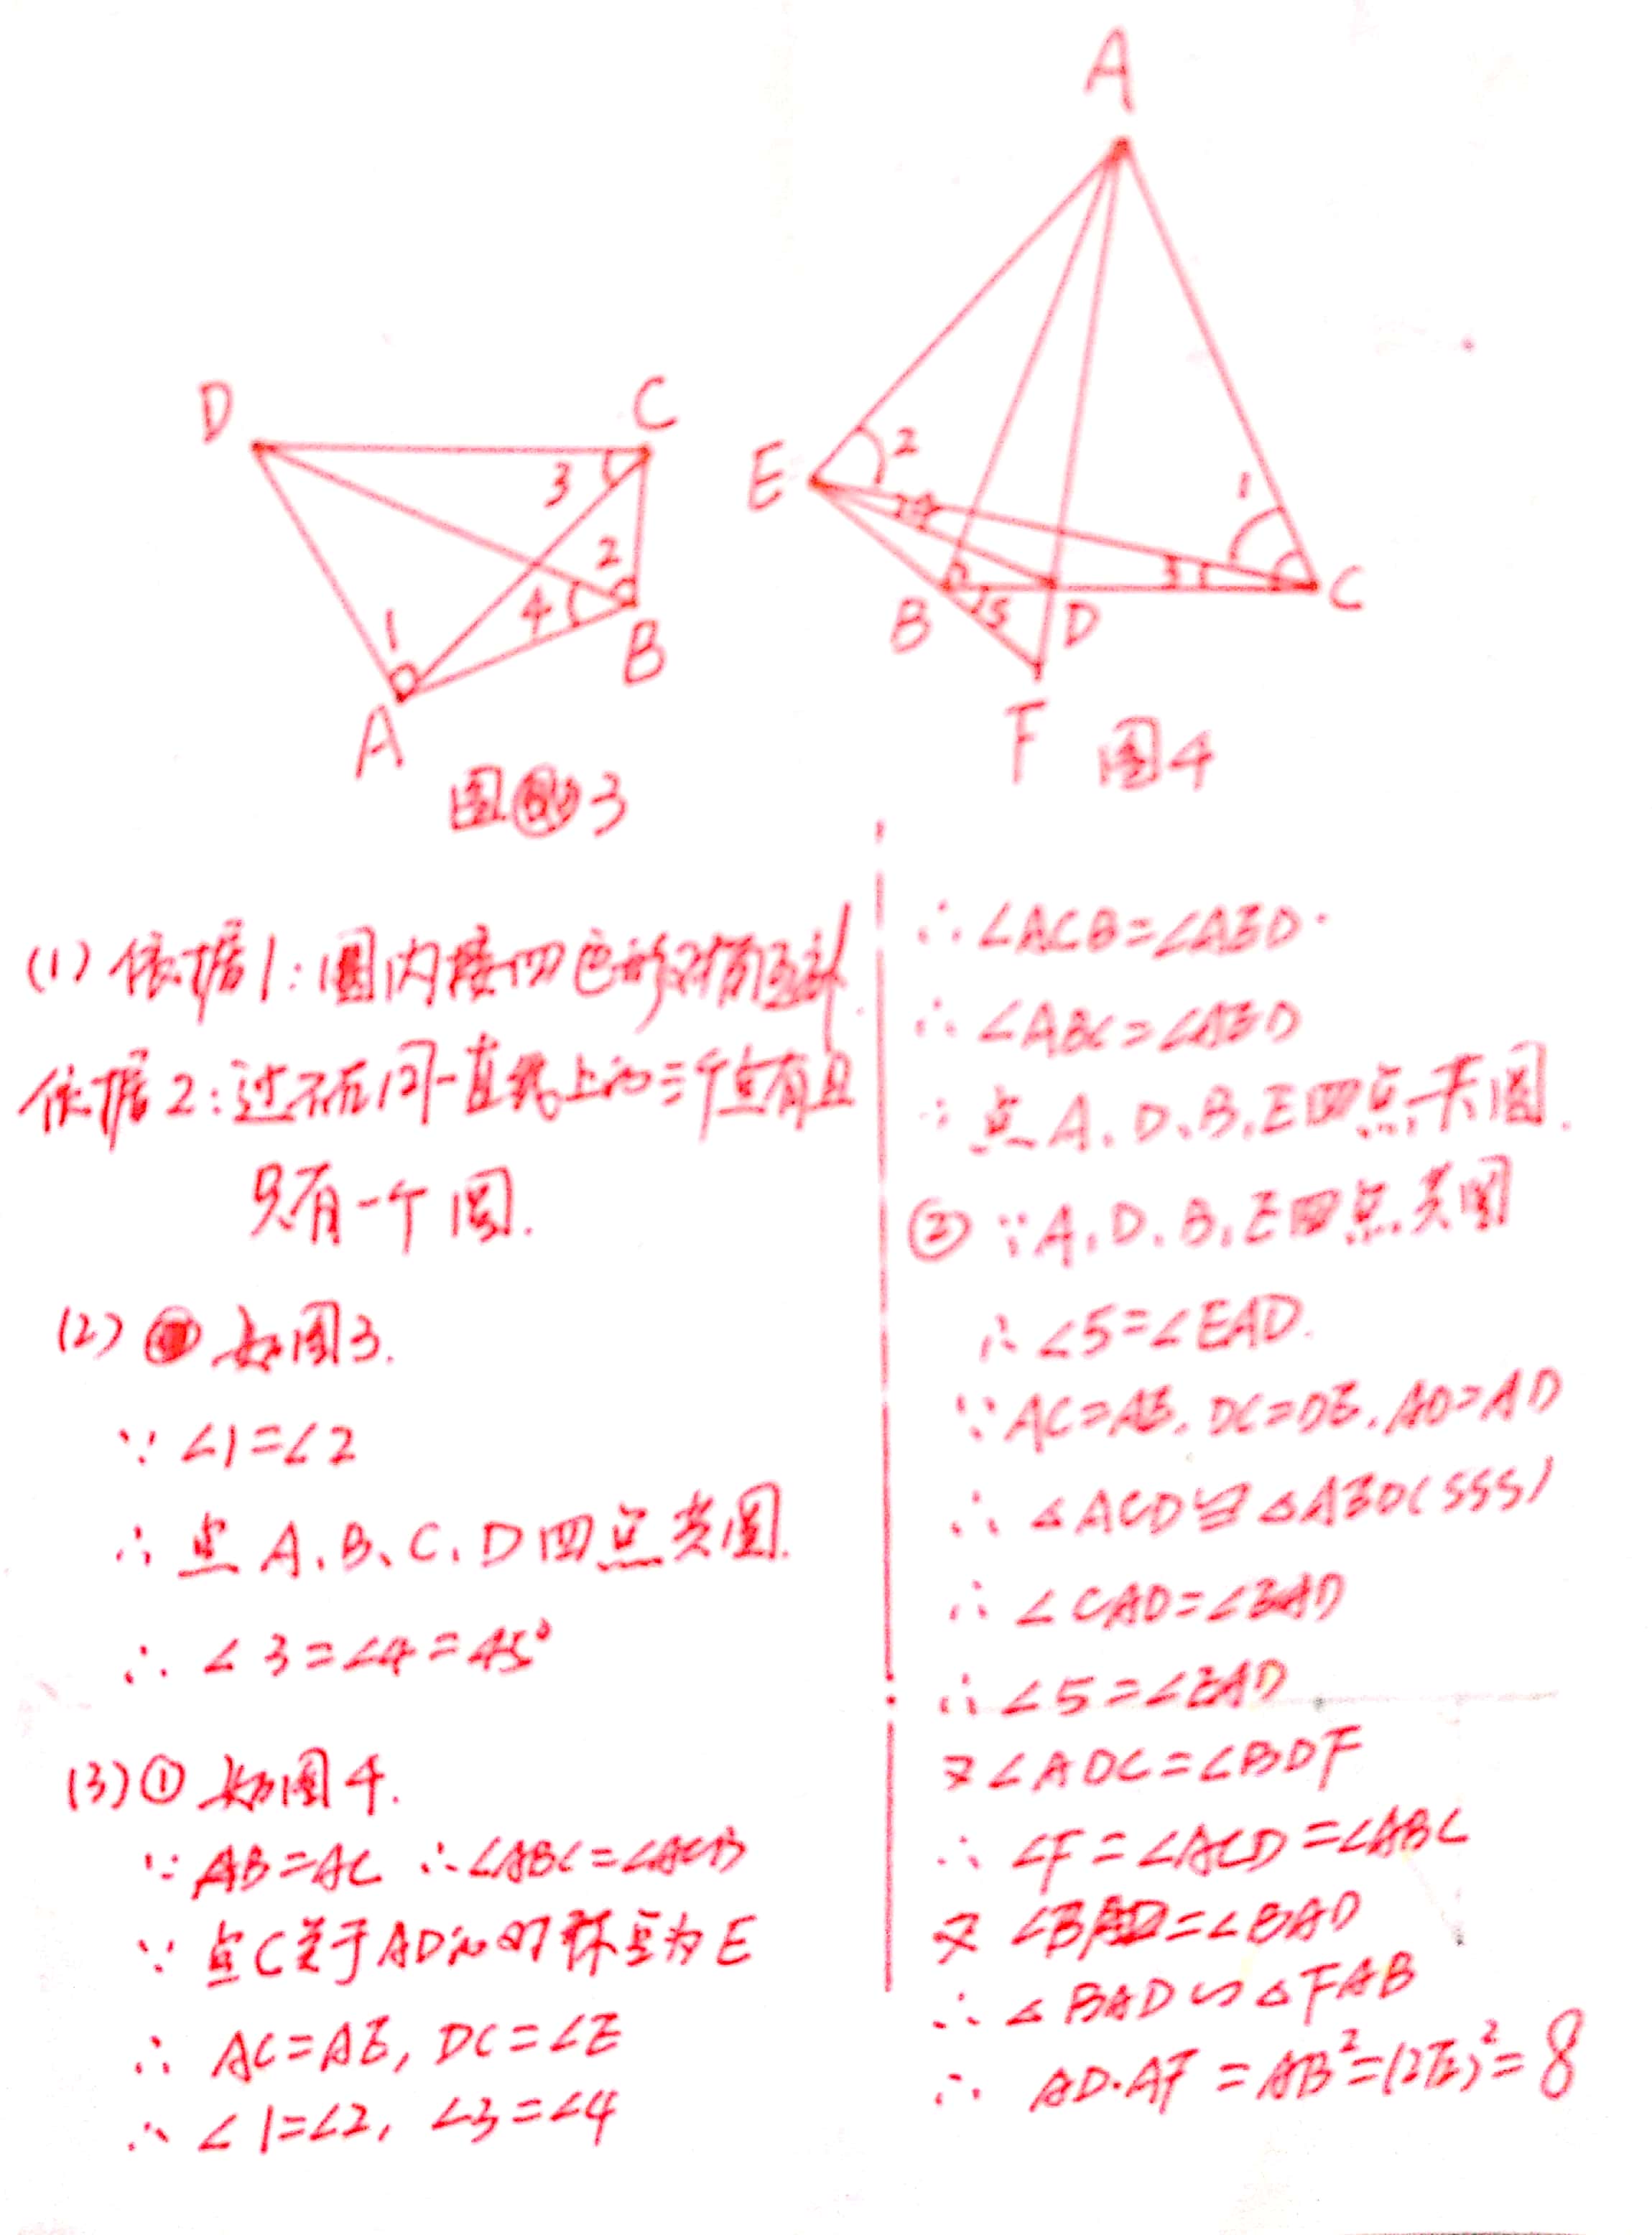 A
D
C
3
2
4
1
B
A
图3
E
2
1
3
B
5
D
C
F
图4
(1) 依据1:圆内接四边形对角互补.
依据2:过不在同一直线上的三个点有且
只有一个圆.
(2) 如图3.
∵ ∠1=∠2
∴ 点A、B、C、D四点共圆.
∴ ∠3=∠4=45°
(3)① 如图4.
∵ AB=AC ∴∠ABC=∠ACB
∵ 点C关于AD的对称点为E
∴ AC=AE, DC=∠E
∴ ∠1=∠2, ∠3=∠4
∴ ∠ACB=∠AED.
∴ ∠ABC=∠AED
∴ 点A、D、B、E四点共圆.
② ∵A、D、B、E四点共圆
∴ ∠5=∠EAD.
∵ AC=AE, DC=DE, AD=AD
∴ △ACD≌△AED(SSS)
∴ ∠CAD=∠EAD
∴ ∠5=∠EAD
又∠ADC=∠BDF
∴ ∠F=∠ACD=∠ABC
又 =∠BAD
∴ △BAD∽△FAB
∴ AD·AF=AB²=(2√2)²=8